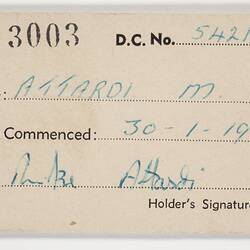 3003 D.C. No. 5421
: ATTARDI M.
Commenced: 30-1-19
Attardi
Holder's Signature